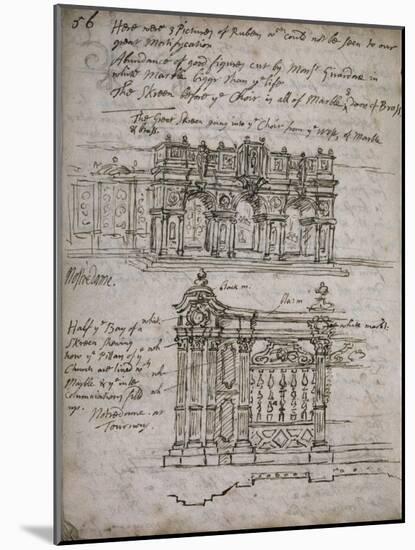 56
Here were 3 Pictures of Rubens wch could not be seen to our
great Mortification
Abundance of good figures cut by Monsr Girardon in
white Marble bigger than ye life
The Skreen before ye Choir is all of Marble 3 doors of Brass
The Great Skreen going into ye Choir from ye West, of Marble
& Brass.
Nostredame.
black m.
Half ye Bay of a
Skreen shewing
how ye Pillars of ye
Church are lined wth
Marble & ye inter
Communications filld
up.
Nostredame at
Tournay
whit.
wh
wh
wh
white marb.